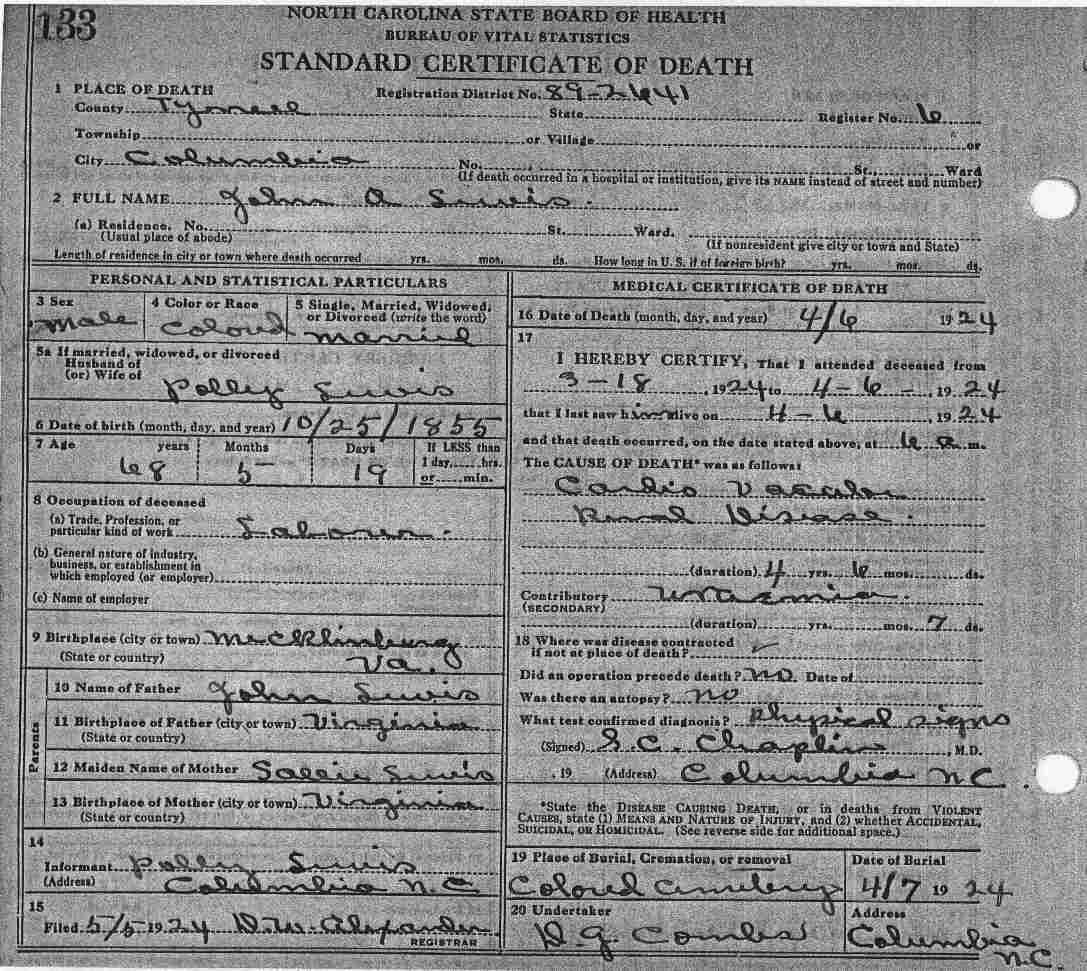 133
NORTH CAROLINA STATE BOARD OF HEALTH
BUREAU OF VITAL STATISTICS
STANDARD CERTIFICATE OF DEATH
1 PLACE OF DEATH Registration District No. 89-2641
County Tyrrell State Register No. 6
Township or Village or
City Columbia No. St., Ward
(If death occurred in a hospital or institution, give its NAME instead of street and number)
2 FULL NAME John A Lewis.
(a) Residence. No. St. Ward.
(Usual place of abode) (If nonresident give city or town and State)
Length of residence in city or town where death occurred yrs. mos. ds. How long in U. S. if of foreign birth? yrs. mos. ds.
PERSONAL AND STATISTICAL PARTICULARS
3 Sex 4 Color or Race 5 Single, Married, Widowed, or Divorced (write the word)
Male Colored Married
5a If married, widowed, or divorced
Husband of
(or) Wife of Polly Lewis
6 Date of birth (month, day, and year) 10/25/1855
7 Age years Months Days If LESS than
68 5 19 1 day, hrs.
or min.
8 Occupation of deceased
(a) Trade, Profession, or
particular kind of work Laborer.
(b) General nature of industry,
business, or establishment in
which employed (or employer)
(c) Name of employer
9 Birthplace (city or town) Mecklinburg
(State or country) Va.
Parents
10 Name of Father John Lewis
11 Birthplace of Father (city or town) Virginia
(State or country)
12 Maiden Name of Mother Sallie Lewis
13 Birthplace of Mother (city or town) Virginia
(State or country)
14
Informant Polly Lewis
(Address) Columbia N.C.
15
Filed 5/5 1924 D.W. Alexander
REGISTRAR
MEDICAL CERTIFICATE OF DEATH
16 Date of Death (month, day, and year) 4/6 1924
17
I HEREBY CERTIFY, That I attended deceased from
3-18, 1924 to 4-6-, 1924
that I last saw him alive on 4-6, 1924
and that death occurred, on the date stated above, at 6 a. m.
The CAUSE OF DEATH* was as follows:
Cardio Vascular
Renal Disease.
(duration) 4 yrs. 6 mos. ds.
Contributory Uraemia.
(SECONDARY)
(duration) yrs. mos. 7 ds.
18 Where was disease contracted
if not at place of death?
Did an operation precede death? No. Date of
Was there an autopsy? No
What test confirmed diagnosis? Physical signs
(Signed) S.C. Chaplin, M.D.
, 19 (Address) Columbia N.C.
*State the DISEASE CAUSING DEATH, or in deaths from VIOLENT
CAUSES, state (1) MEANS AND NATURE OF INJURY, and (2) whether ACCIDENTAL,
SUICIDAL, OR HOMICIDAL. (See reverse side for additional space.)
19 Place of Burial, Cremation, or removal Date of Burial
Colored Cemetery 4/7 1924
20 Undertaker Address
D.G. Combs Columbia
N.C.